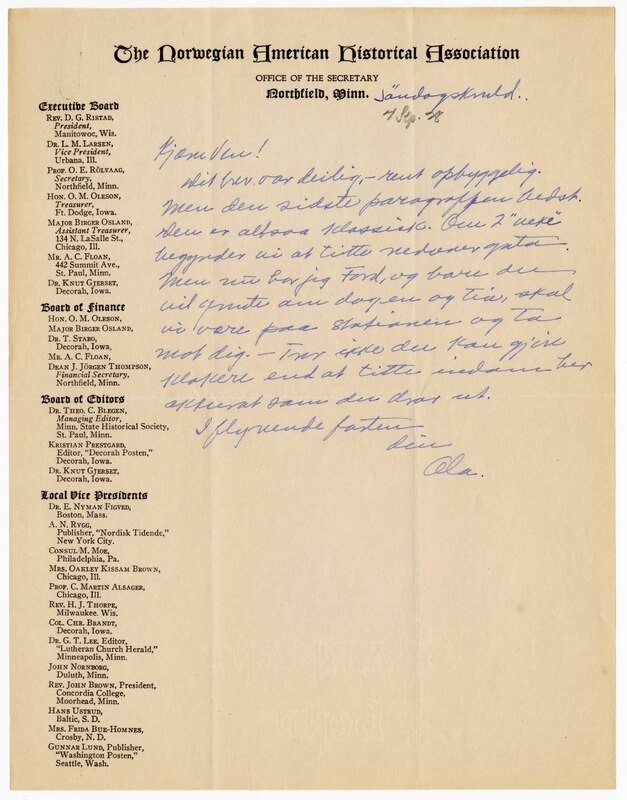 The Norwegian American Historical Association
OFFICE OF THE SECRETARY
Northfield, Minn. Söndagskveld.
Sep. 28
Executive Board
REV. D. G. RISTAD,
President,
Manitowoc, Wis.
DR. L. M. LARSEN,
Vice President,
Urbana, Ill.
PROF. O. E. RÖLVAAG,
Secretary,
Northfield, Minn.
HON. O. M. OLESON,
Treasurer,
Ft. Dodge, Iowa.
MAJOR BIRGER OSLAND,
Assistant Treasurer,
134 N. LaSalle St.,
Chicago, Ill.
MR. A. C. FLOAN,
442 Summit Ave.,
St. Paul, Minn.
DR. KNUT GJERSET,
Decorah, Iowa.
Board of Finance
HON. O. M. OLESON,
MAJOR BIRGER OSLAND,
DR. T. STABO,
Decorah, Iowa.
MR. A. C. FLOAN,
DEAN J. JÖRGEN THOMPSON,
Financial Secretary,
Northfield, Minn.
Board of Editors
DR. THEO. C. BLEGEN,
Managing Editor,
Minn. State Historical Society,
St. Paul, Minn.
KRISTIAN PRESTGARD,
Editor, "Decorah Posten,"
Decorah, Iowa.
DR. KNUT GJERSET,
Decorah, Iowa.
Local Vice Presidents
DR. E. NYMAN FIGVED,
Boston, Mass.
A. N. RYGG,
Publisher, "Nordisk Tidende,"
New York City.
CONSUL M. MOE,
Philadelphia, Pa.
MRS. OAKLEY KISSAM BROWN,
Chicago, Ill.
PROF. C. MARTIN ALSAGER,
Chicago, Ill.
REV. H. J. THORPE,
Milwaukee. Wis.
COL. CHR. BRANDT,
Decorah, Iowa.
DR. G. T. LEE, Editor,
"Lutheran Church Herald,"
Minneapolis, Minn.
JOHN NORNBORG,
Duluth, Minn.
REV. JOHN BROWN, President,
Concordia College,
Moorhead, Minn.
HANS USTRUD,
Baltic, S. D.
MRS. FRIDA BUE-HOMNES,
Crosby, N. D.
GUNNAR LUND, Publisher,
"Washington Posten,"
Seattle, Wash.
Kjære Ven!
Dit brev var deilig, – rent opbyggelig.
Men den sidste paragraffen bedst.
Den er altsaa klassisk. Om 2 "veke"
begynder vi at titte nedover gata.
Men nu har jeg Ford, og bare du
vil ymte om dagen og tia, skal
vi være paa stationen og ta
mot dig. – Trur ikke du kan gjøre
klokere end at titte indom her
akkurat som du drar ut.
I flyvende fasten
din
Ola.